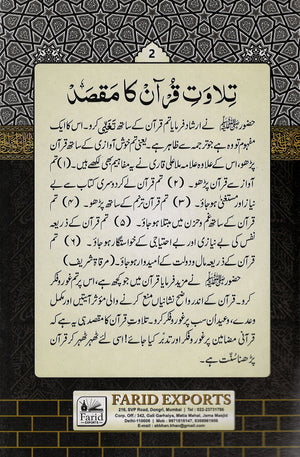 2
تلاوتِ قرآن کا مقصد
حضور ﷺ نے ارشاد فرمایا تم قرآن کے ساتھ تَغَنّی کرو۔ اس کا ایک
مفہوم تو وہ ہے جو ترجمہ سے ظاہر ہے۔ یعنی تم خوش آوازی کے ساتھ قرآن
پڑھو، اس کے علاوہ علامہ ملا علی قاری نے یہ مفاہیم بھی لکھے ہیں۔ (۱) تم
آواز سے قرآن پڑھو۔ (۲) تم قرآن لے کر دوسری کتاب سے بے
نیاز اور مستغنی ہو جاؤ۔ (۳) تم قرآن ترنم کے ساتھ پڑھو۔ (۴) تم
قرآن کے ساتھ غم و حزن میں مبتلا ہو جاؤ۔ (۵) تم قرآن کے ذریعہ
نفس کی بے نیازی اور بے احتیاجی کے خواستگار ہو جاؤ۔ (۶) تم
قرآن کے ذریعہ مال و دولت کے امیدوار ہو جاؤ۔ (مرقاۃ شریف)
حضور ﷺ نے مزید فرمایا قرآن میں جو کچھ ہے، اس پر غور و فکر
کرو۔ قرآن کے اندر واضح نشانیاں منع کرنے والی مؤثر آیتیں اور مکمل
وعدے، وعیدا ن سب پر غور و فکر کرو۔ تلاوتِ قرآن کا مقصد ہی یہ ہے کہ
قرآنی مضامین پر غور و فکر اور تدبّر کیا جائے! اسی لئے ٹھہر ٹھہر کر قرآن
پڑھنا سنّت ہے۔
Farid
EXPORTS
FARID EXPORTS
216, SVP Road, Dongri, Mumbai | Tel : 022-23731786
Corp. Off : 342, Gali Garhaiya, Matia Mahal, Jama Masjid
Delhi-110006 | Mob : 9971616147, 9398981698
E-mail : abkhan.khan@gmail.com